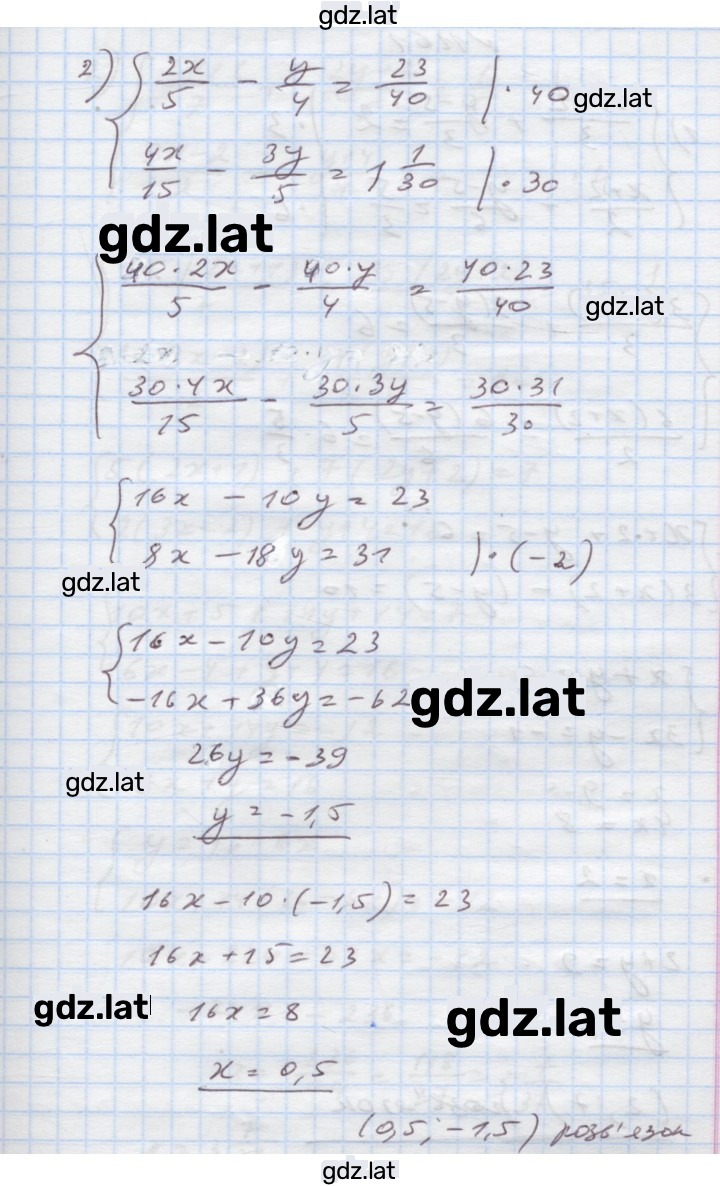 gdz.lat
2) { 2x/5 - y/4 = 23/40 | · 40
gdz.lat
4x/15 - 3y/5 = 1 1/30 | · 30
gdz.lat
{ 40·2x/5 - 40·y/4 = 40·23/40
gdz.lat
30·4x/15 - 30·3y/5 = 30·31/30
{ 16x - 10y = 23
8x - 18y = 31 | · (-2)
gdz.lat
{ 16x - 10y = 23
-16x + 36y = -62
gdz.lat
26y = -39
gdz.lat
y = -1,5
16x - 10·(-1,5) = 23
16x + 15 = 23
gdz.lat
16x = 8
gdz.lat
x = 0,5
(0,5; -1,5) розв'язок
gdz.lat